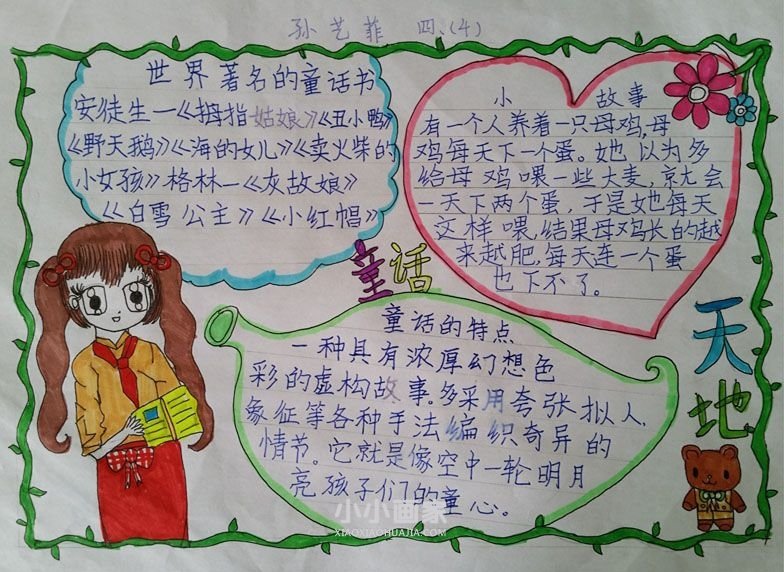 孙艺菲 四、(4)
世界著名的童话书
安徒生一《拇指姑娘》《丑小鸭》
《野天鹅》《海的女儿》《卖火柴的
小女孩》格林一《灰故娘》
《白雪公主》《小红帽》
小 故事
有一个人养着一只母鸡,母
鸡每天下一个蛋。她以为多
给母鸡喂一些大麦,就会
一天下两个蛋,于是她每天
这样喂,结果母鸡长的越
来越肥,每天连一个蛋
也下不了。
童话
天地
童话的特点
一种具有浓厚幻想色
彩的虚构故事。多采用夸张拟人.
象征等各种手法编织奇异的
情节。它就是像空中一轮明月
亮孩子们的童心。
小小画家
XIAOXIAOHUAJIA.COM